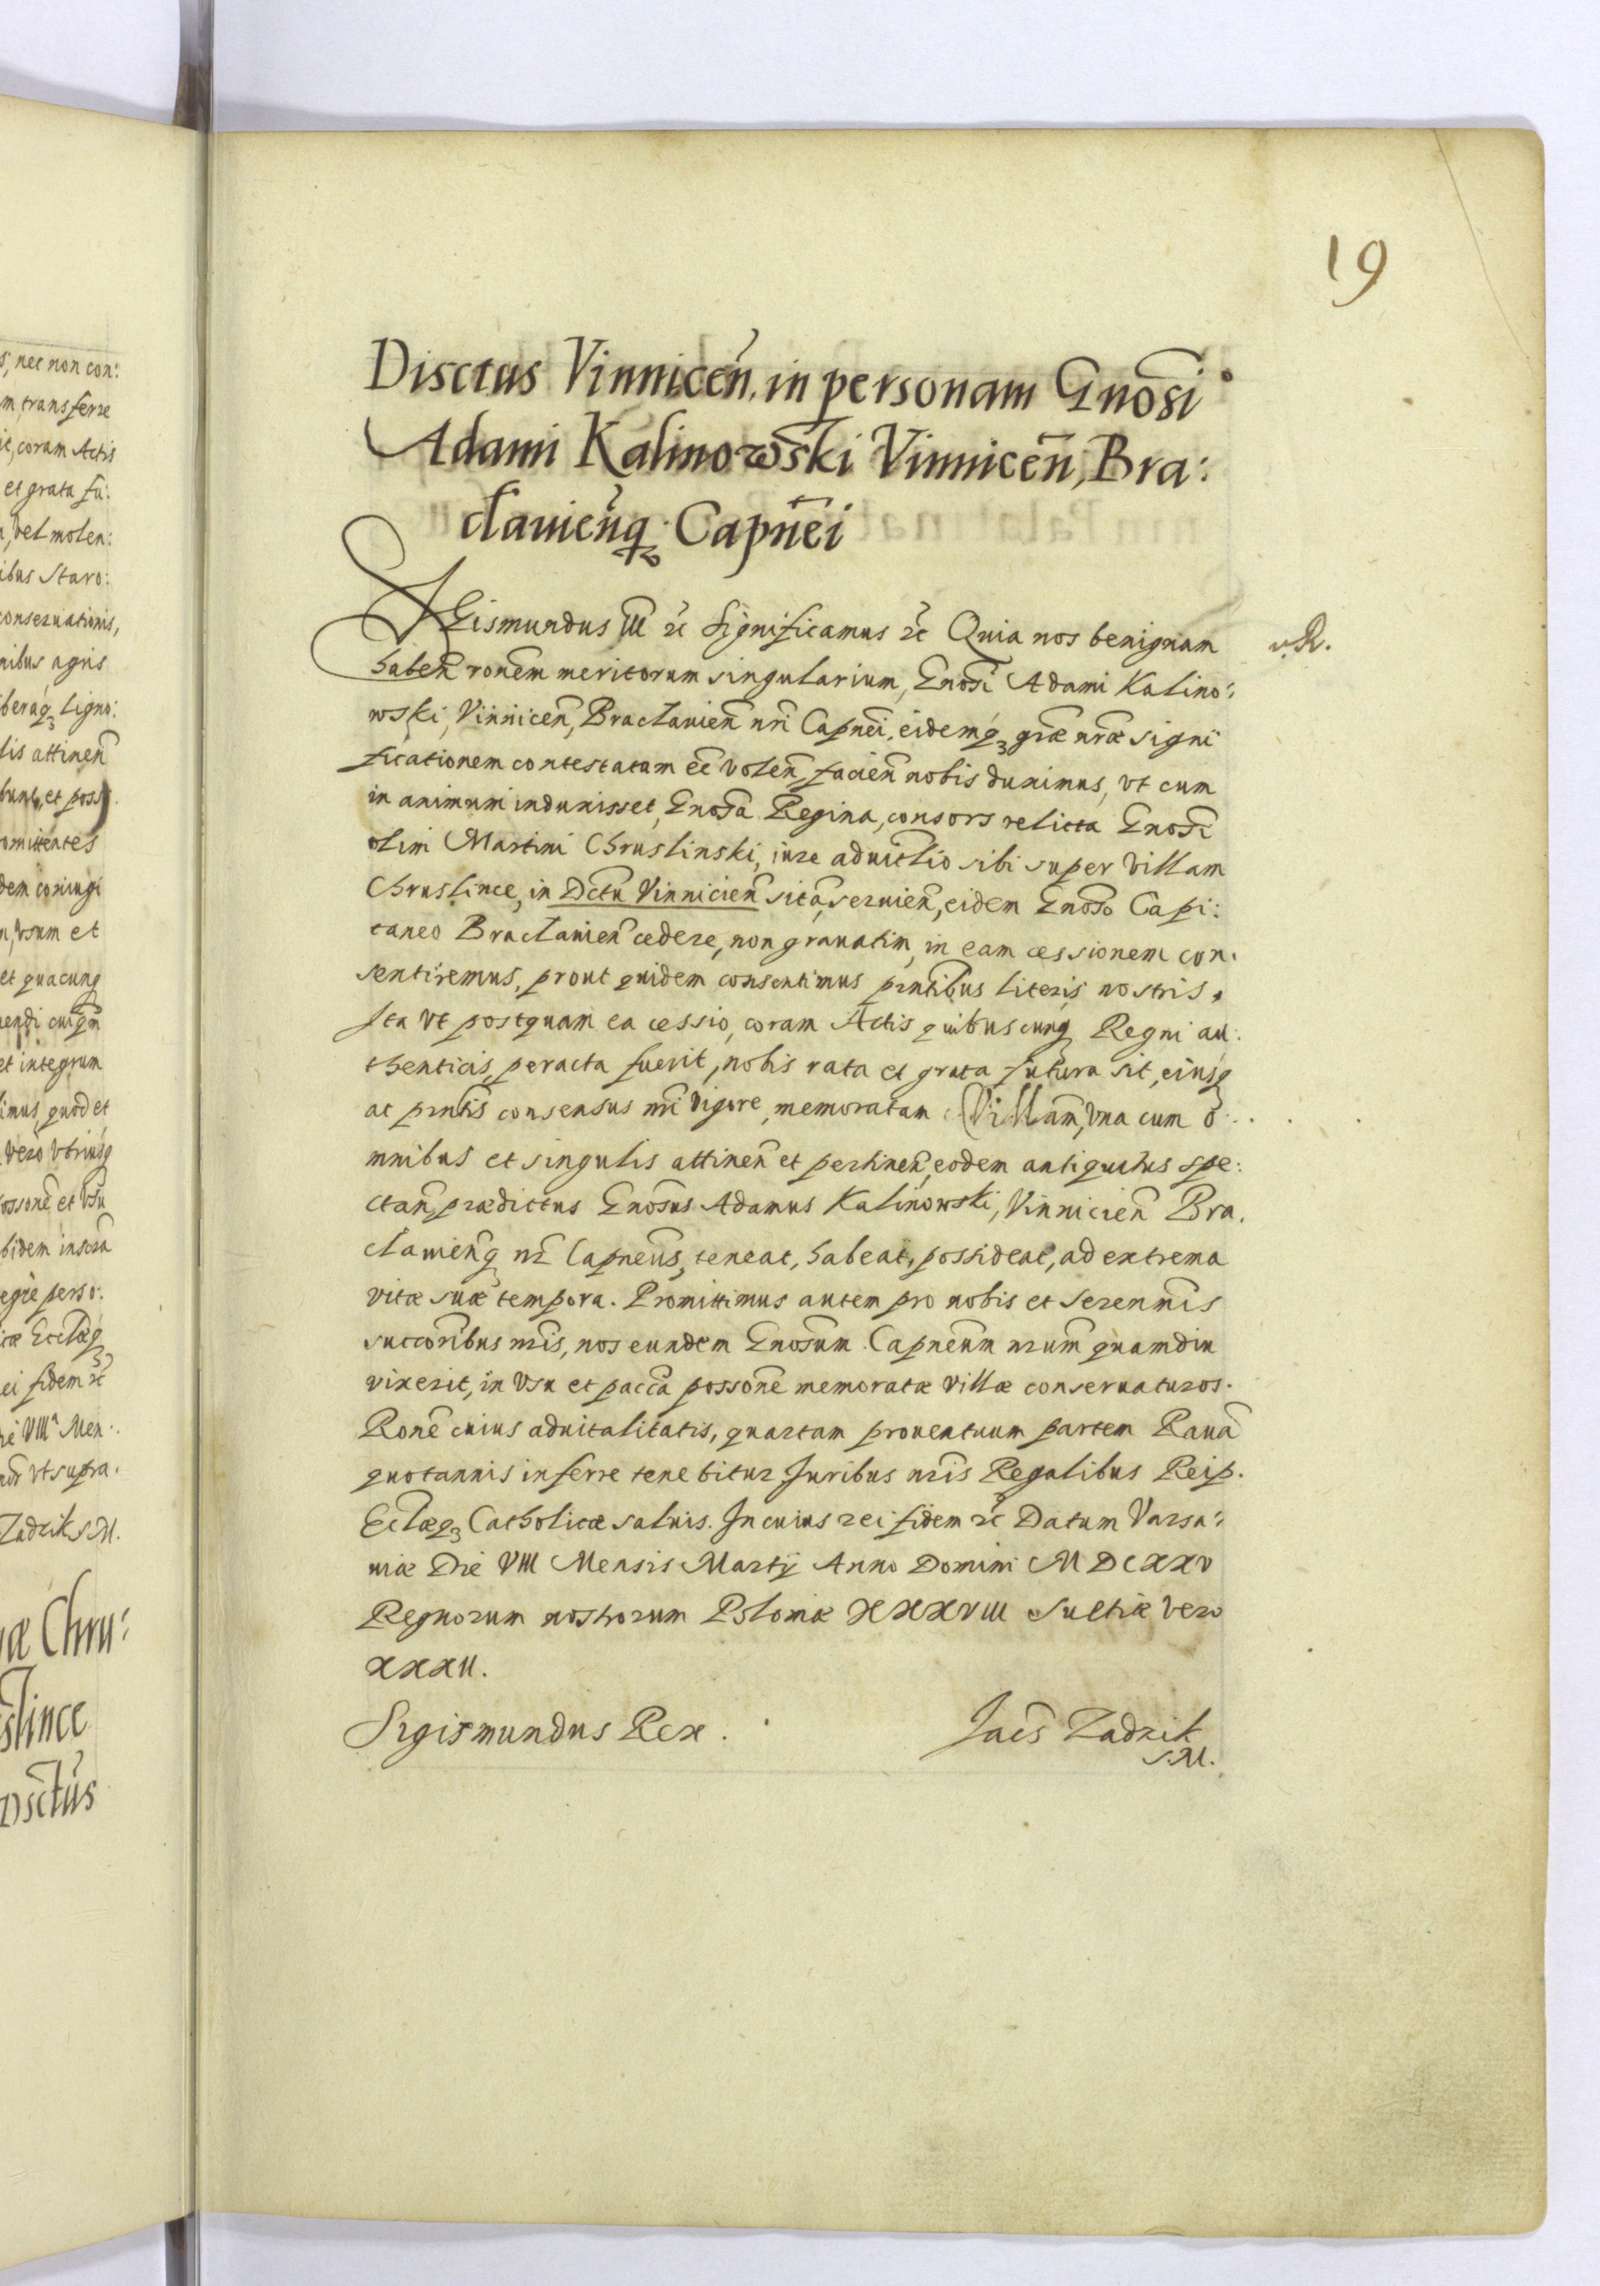 19
Disctus Vinnicen̄, in personam Gnōsi
Adami Kalinowski Vinnicen̄, Bra:
clauien̄q̨ Capn̄ei
SGismundus III ꝛc̄ Significamus ꝛc̄ Quia nos benignam
haben̄ ron̄em meritorum singularium, Gnōsi Adami Kalino:
wski, Vinnicen̄, Braclauien̄ nri Capn̄ei, eidemq̨ græ nræ signi
ficationem contestatam eē volen̄, facien̄ nobis duximus, vt cum
in animum induxisset, Gnōsa Regina, consors relicta Gnōsi
olim Martini Chruslinski, iure aduitlio sibi super Villam
Chruslince, in Dctū Vinnicien̄ sitā, seruien̄, eidem Gnōso Capi:
taneo Braclauien̄ cedere, non grauatim, in eam cessionem con.
sentiremus, prout quidem consentimus pn̄tibus literis nostris,
Ita vt postquam ea cessio, coram Actis quibuscunq̨ Regni au:
thenticis, peracta fuerit, nobis rata et grata futura sit, eiusq̨
ac pn̄tis consensus nri vigore, memoratam Villam, vna cum o
mnibus et singulis attinen̄ et pertinen̄, eodem antiquitus spe:
ctan̄, prædictus Gnōsus Adamus Kalinowski, Vinnicien̄ Bra.
clauien̄q̨ nr̄ Capn̄eus, teneat, habeat, possideat, ad extrema
vitæ suæ tempora. Promittimus autem pro nobis et Serenn̄is
succoribus nris, nos eundem Gnōsum Capn̄eum nrum quamdiu
vixerit, in vsu et pacc̄a posson̄e memoratæ villæ conseruaturos.
Ron̄e cuius aduitalitatis, quartam prouentuum partem Rauā
quotannis inferre tenebitur Juribus nris Regalibus Reip.
Eclæq̨ Catholicæ saluis. In cuius rei fidem ꝛc̄ Datum Varsa:
uiæ Die VIII Mensis Martij Anno Domini MDCXXV
Regnorum nostrorum Poloniæ XXXVIII Suetiæ vero
XXXII.
Sigismundus Rex.
Jacs̄ Zadzik
S.M.
s, nec non con:
m, transferre
coram Actis
et grata fu:
vel molen:
ibus Staro:
conseruationis,
nibus agris
liberaq̨ ligno:
lis attinen̄
et poss
omittentes
dem coniugi
vsum et
et quacunq̨
et integrum
quod et
vero vtriusq̨
posson̄e et vsu
ibidem
perso:
Ecclæq̨
ei fidem ꝛc̄
VIIIa Men
vt supra.
Zadzik S.M.
æ Chru:
slince
Dsctus